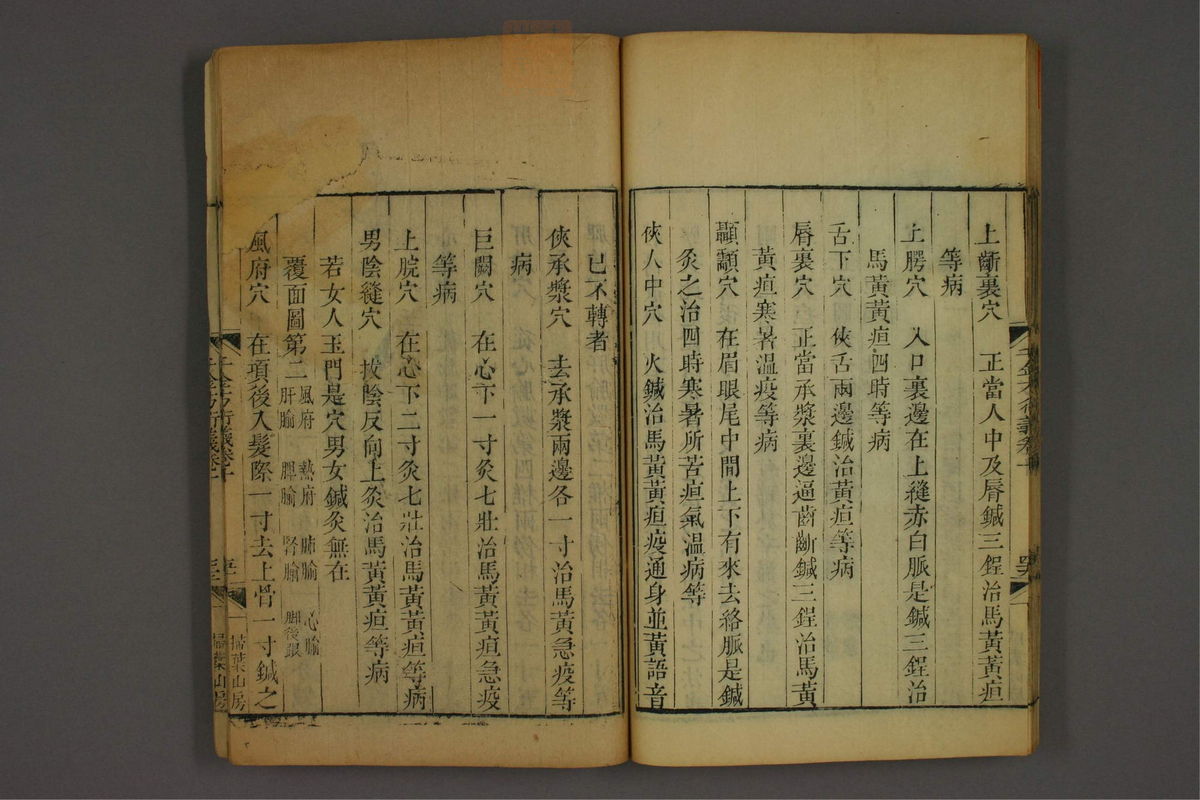 上齗裏穴　正當人中及脣鍼三鋥治馬黃黃疸
等病
上腭穴　入口裏邊在上縫赤白脈是鍼三鋥治
馬黃黃疸四時等病
舌下穴　俠舌兩邊鍼治黃疸等病
脣裏穴　正當承漿裏邊逼齒齗鍼三鋥治馬黃
黃疸寒暑溫疫等病
顳顬穴　在眉眼尾中間上下有來去絡脈是鍼
灸之治四時寒暑所苦疸氣溫病等
俠人中穴　火鍼治馬黃黃疸疫通身並黃語音
已不轉者
俠承漿穴　去承漿兩邊各一寸治馬黃急疫等
病
巨闕穴　在心下一寸灸七壯治馬黃黃疸急疫
等病
上脘穴　在心下二寸灸七壯治馬黃黃疸等病
男陰縫穴　拔陰反向上灸治馬黃黃疸等病
若女人玉門是穴男女鍼灸無在
覆面圖第二　風府　熱府　肺腧　心腧
肝腧　脾腧　腎腧　脚後跟
風府穴　在項後入髮際一寸去上骨一寸鍼之
千金方衍義卷十
掃葉山房